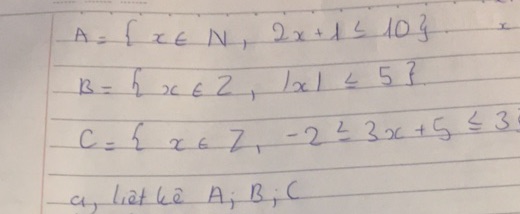 A = { x ∈ N, 2x + 1 ≤ 10 }. x
B = { x ∈ Z, |x| ≤ 5 }
C = { x ∈ Z, -2 ≤ 3x + 5 ≤ 3 }
a, liệt kê A; B; C